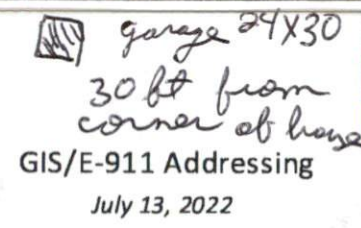 garage 24X30
30 ft from
corner of house
GIS/E-911 Addressing
July 13, 2022